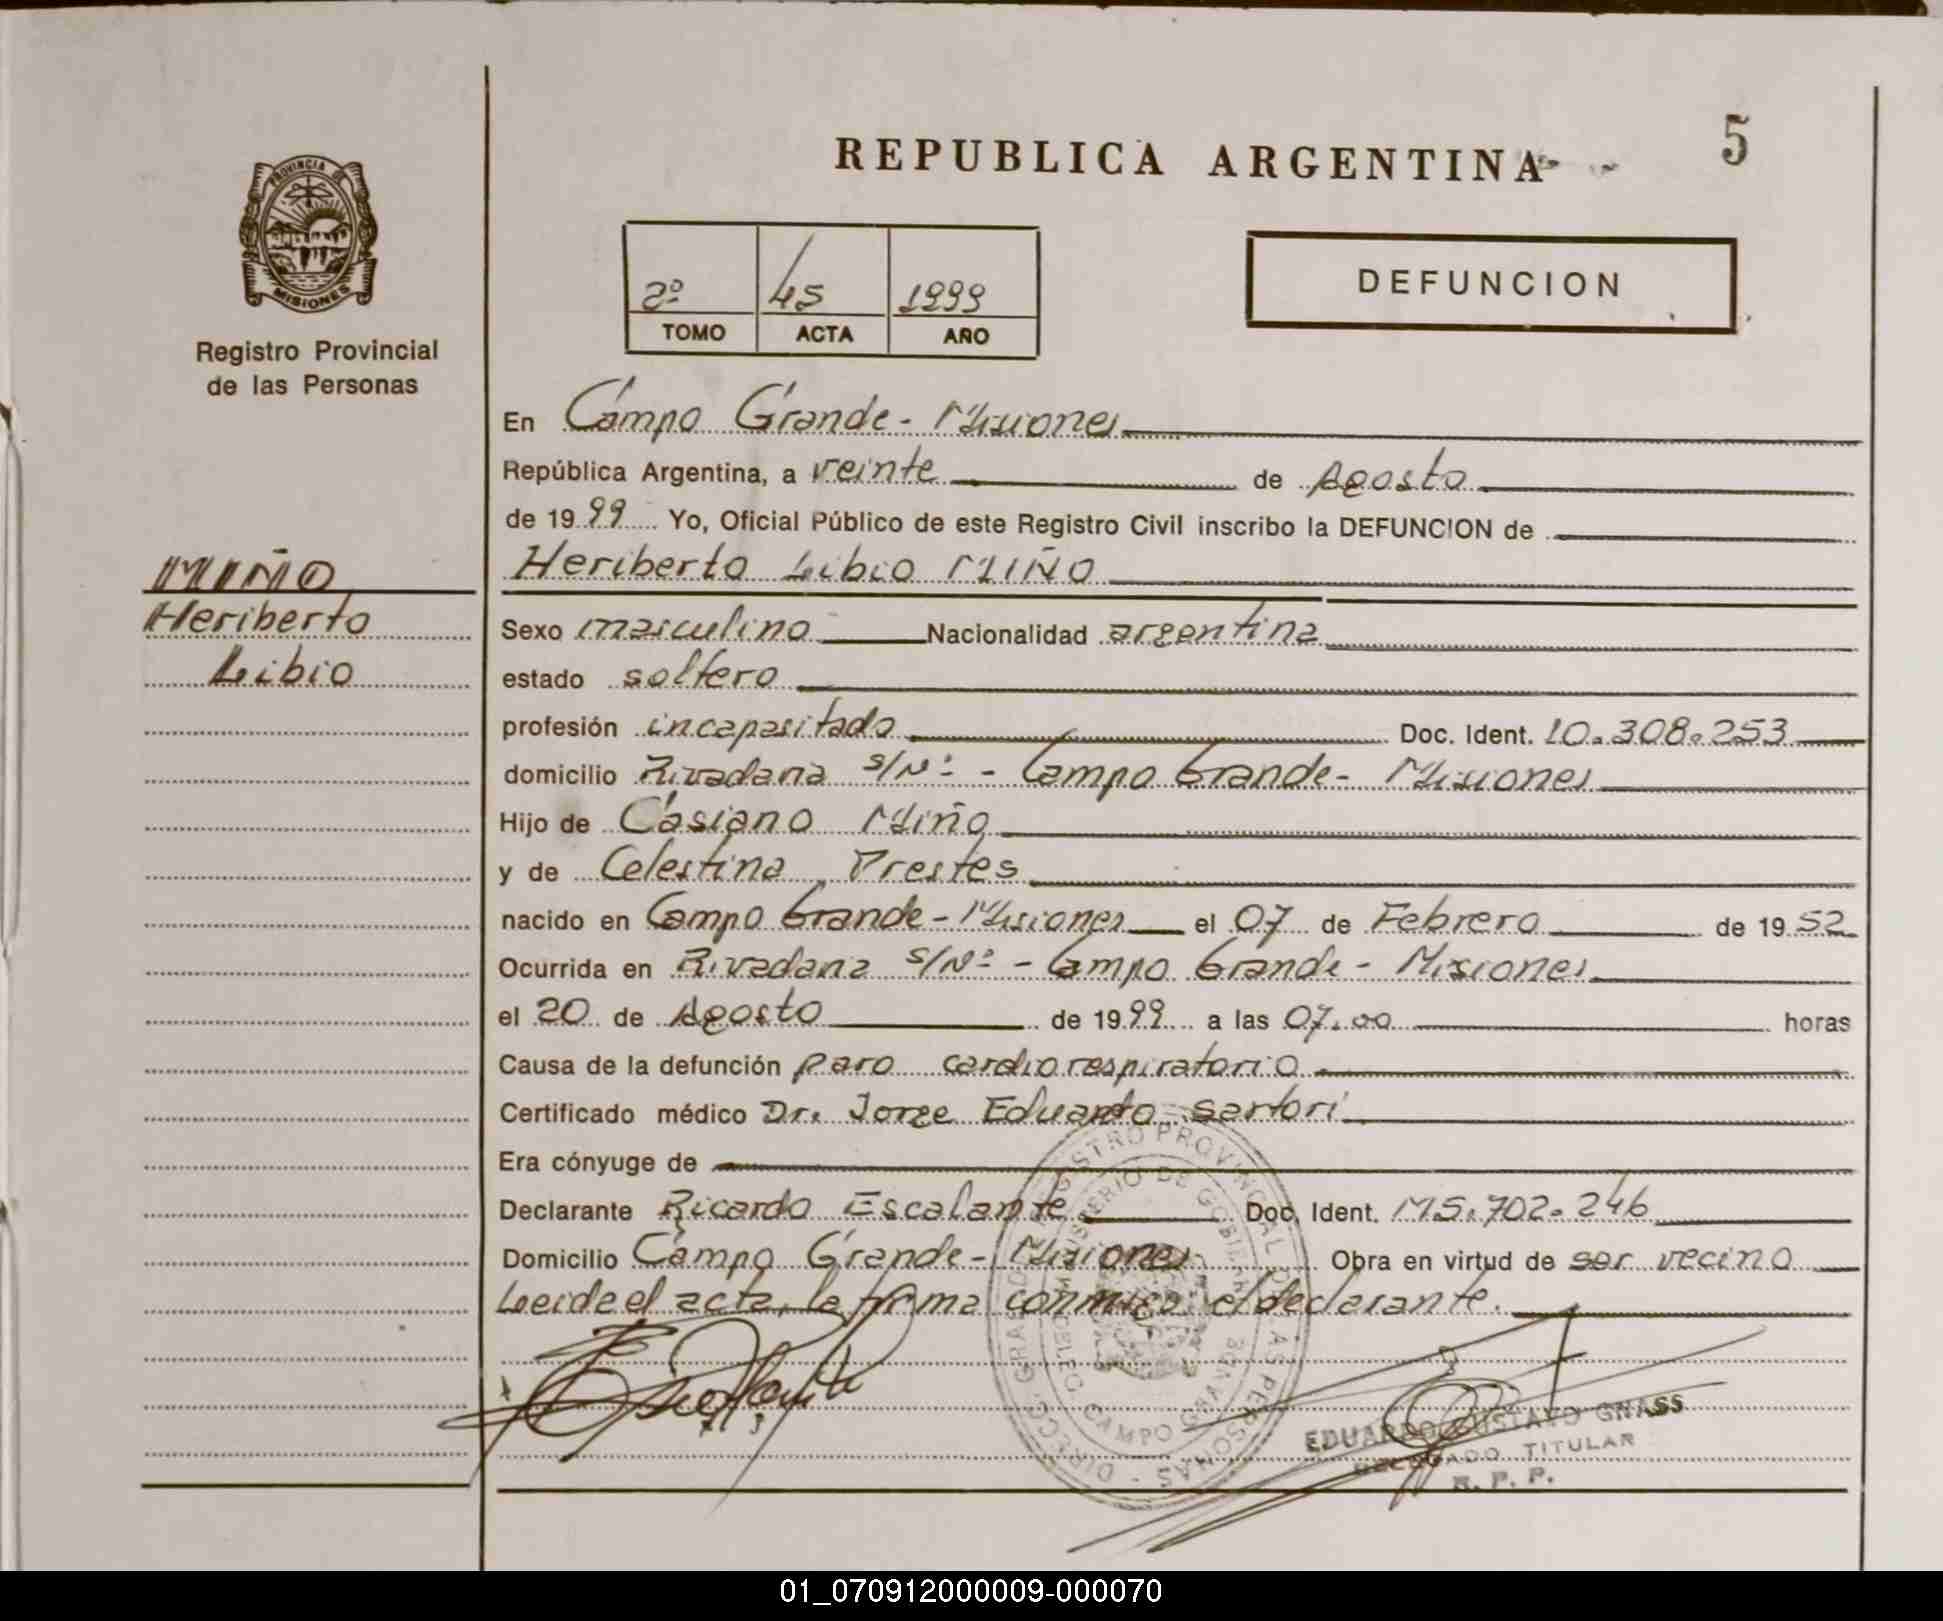 REPUBLICA ARGENTINA
5
PROVINCIA DE
MISIONES
Registro Provincial
de las Personas
2º 45 1999
TOMO ACTA AÑO
DEFUNCION
MIÑO
Heriberto
Libio
En Campo Grande - Misiones
República Argentina, a veinte de Agosto
de 19 99 Yo, Oficial Público de este Registro Civil inscribo la DEFUNCION de
Heriberto Libio MIÑO
Sexo masculino Nacionalidad argentina
estado soltero
profesión incapasitado Doc. Ident. 10.308.253
domicilio Rivadavia s/Nº - Campo Grande - Misiones
Hijo de Casiano Miño
y de Celestina Prestes
nacido en Campo Grande - Misiones el 07 de Febrero de 19 52
Ocurrida en Rivadavia s/Nº - Campo Grande - Misiones
el 20 de Agosto de 19 99 a las 07.00 horas
Causa de la defunción paro cardiorespiratorio
Certificado médico Dr. Jorge Eduardo Sartori
Era cónyuge de
Declarante Ricardo Escalante Doc. Ident. M5.702.246
Domicilio Campo Grande - Misiones Obra en virtud de ser vecino
Leida el acta, la firma conmigo el declarante.
REGISTRO PROVINCIAL DE LAS PERSONAS
MINISTERIO DE GOBIERNO
CAMPO GRANDE
EDUARDO GUSTAVO GNASS
DELEGADO TITULAR
R. P. P.
01_070912000009-000070